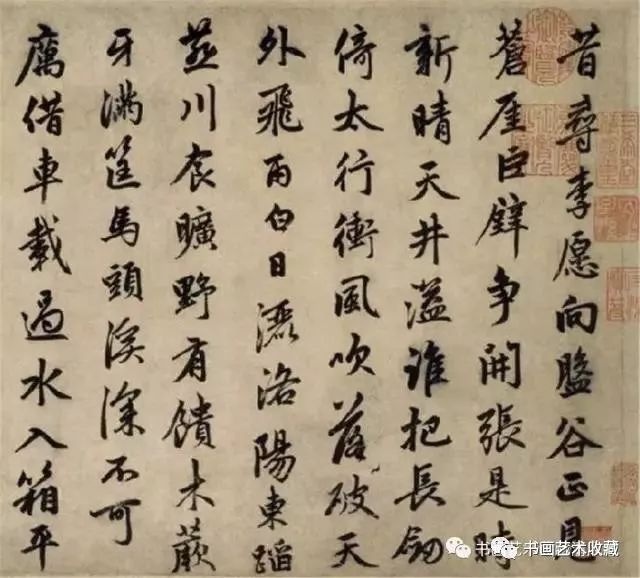 昔尋李愿向盤谷正見
蒼厓巨壁争開張是時
新晴天井溢誰把長劒
倚太行衝風吹落破天
外飛雨白日灑洛陽東蹈
燕川食曠野有饋木蕨
牙满筐馬頭溪深不可
厲借車載過水入箱平
书画艺术收藏